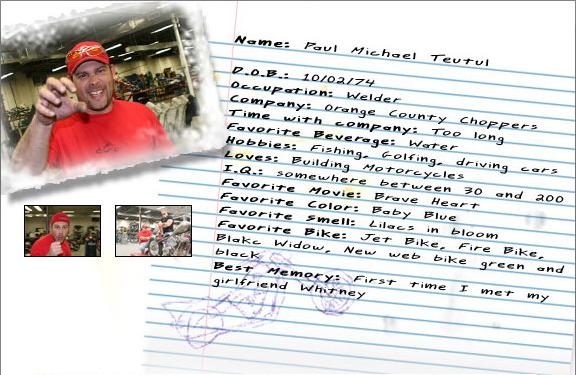 Name: Paul Michael Teutul
D.O.B.: 10/02/74
Occupation: Welder
Company: Orange County Choppers
Time with company: Too long
Favorite Beverage: Water
Hobbies: Fishing, Golfing, driving cars
Loves: Building Motorcycles
I.Q.: somewhere between 30 and 200
Favorite Movie: Brave Heart
Favorite Color: Baby Blue
Favorite smell: Lilacs in bloom
Favorite Bike: Jet Bike, Fire Bike,
Blakc Widow, New web bike green and
black
Best Memory: First time I met my
girlfriend Whitney